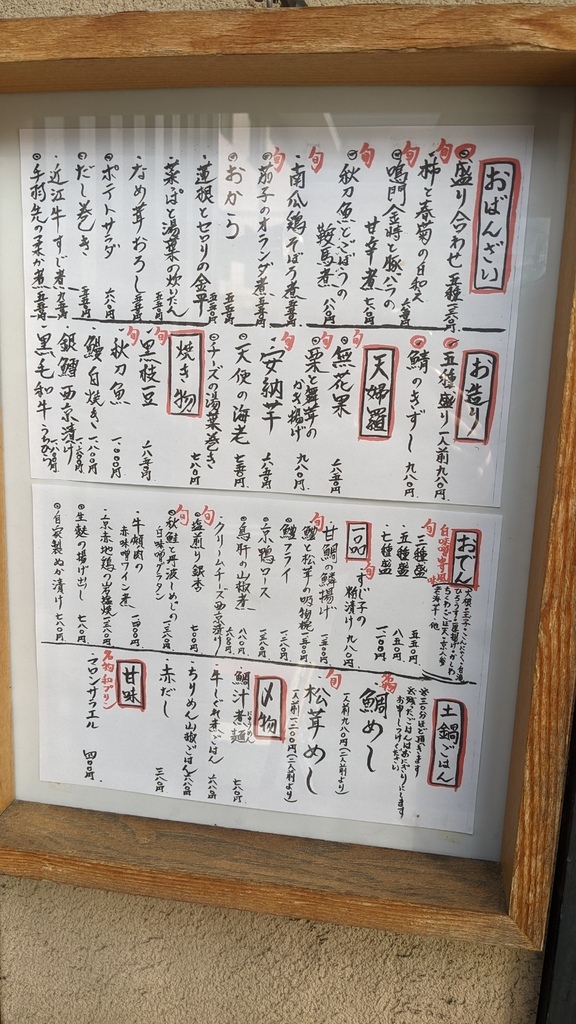 おばんざい
旬
◎盛り合わせ 五種 一二八〇円
旬
・柿と春菊の白和え
旬
◎鳴門金時と豚バラの
甘辛煮 七八〇円
旬
・秋刀魚とごぼうの
鞍馬煮 八八〇円
旬
・南瓜鶏そぼろ煮 五五〇円
旬
◎茄子のオランダ煮 五五〇円
◎おから 五五〇円
・蓮根とセロリの金平 五五〇円
・菜っぱと湯葉の炊いたん 五五〇円
・なめ茸おろし 五五〇円
◎ポテトサラダ 六八〇円
◎だし巻き
・近江牛すじ煮
◎手羽先の柔か煮 五五〇円
お造り
◎五種盛り 一人前 九八〇円
◎鯖のきずし 九八〇円
天婦羅
旬
・無花果 六五〇円
旬
・栗と舞茸の
かき揚げ 九八〇円
旬
・安納芋 六五〇円
◎天使の海老 七五〇円
◎チーズの湯葉巻き 七八〇円
焼き物
旬
・黒枝豆 六八五円
旬
・秋刀魚 一、〇〇〇円
・鰻白焼き
・銀鱈西京漬け
・黒毛和牛
おでん
白味噌
旬
大根・玉子・こんにゃく
・三種盛 五五〇円
・五種盛 八五〇円
・七種盛 一一〇〇円
一品
旬
すじ子の
粕漬け 九八〇円
甘鯛の鱗揚げ
旬
鱧と松茸の吸物椀
・鱧フライ
◎京鴨ロース
◎鳥肝の山椒煮 八八〇円
・クリームチーズ西京漬け 六八〇円
旬
◎塩煎り銀杏 七〇〇円
旬
◎秋鮭と丹波しめじの
白味噌グラタン
・牛頬肉の
赤味噌ワイン煮
・京赤地鶏の岩塩焼
◎生麩の揚げ出し 七八〇円
◎自家製ぬか漬け 七八〇円
土鍋ごはん
※三〇分ほど頂きます
※残ったごはんはおにぎりにします
お申しつけください
名物
鯛めし
(一人前 九八〇円(二人前より)
旬
松茸めし
(一人前 一三〇〇円(二人前より)
〆物
・鯛汁煮麺 七八〇円
・牛しぐれ煮ごはん 六八〇円
・ちりめん山椒ごはん 六八〇円
・赤だし 三八〇円
甘味
名物 和プリン
・マロンサラエル 四〇〇円